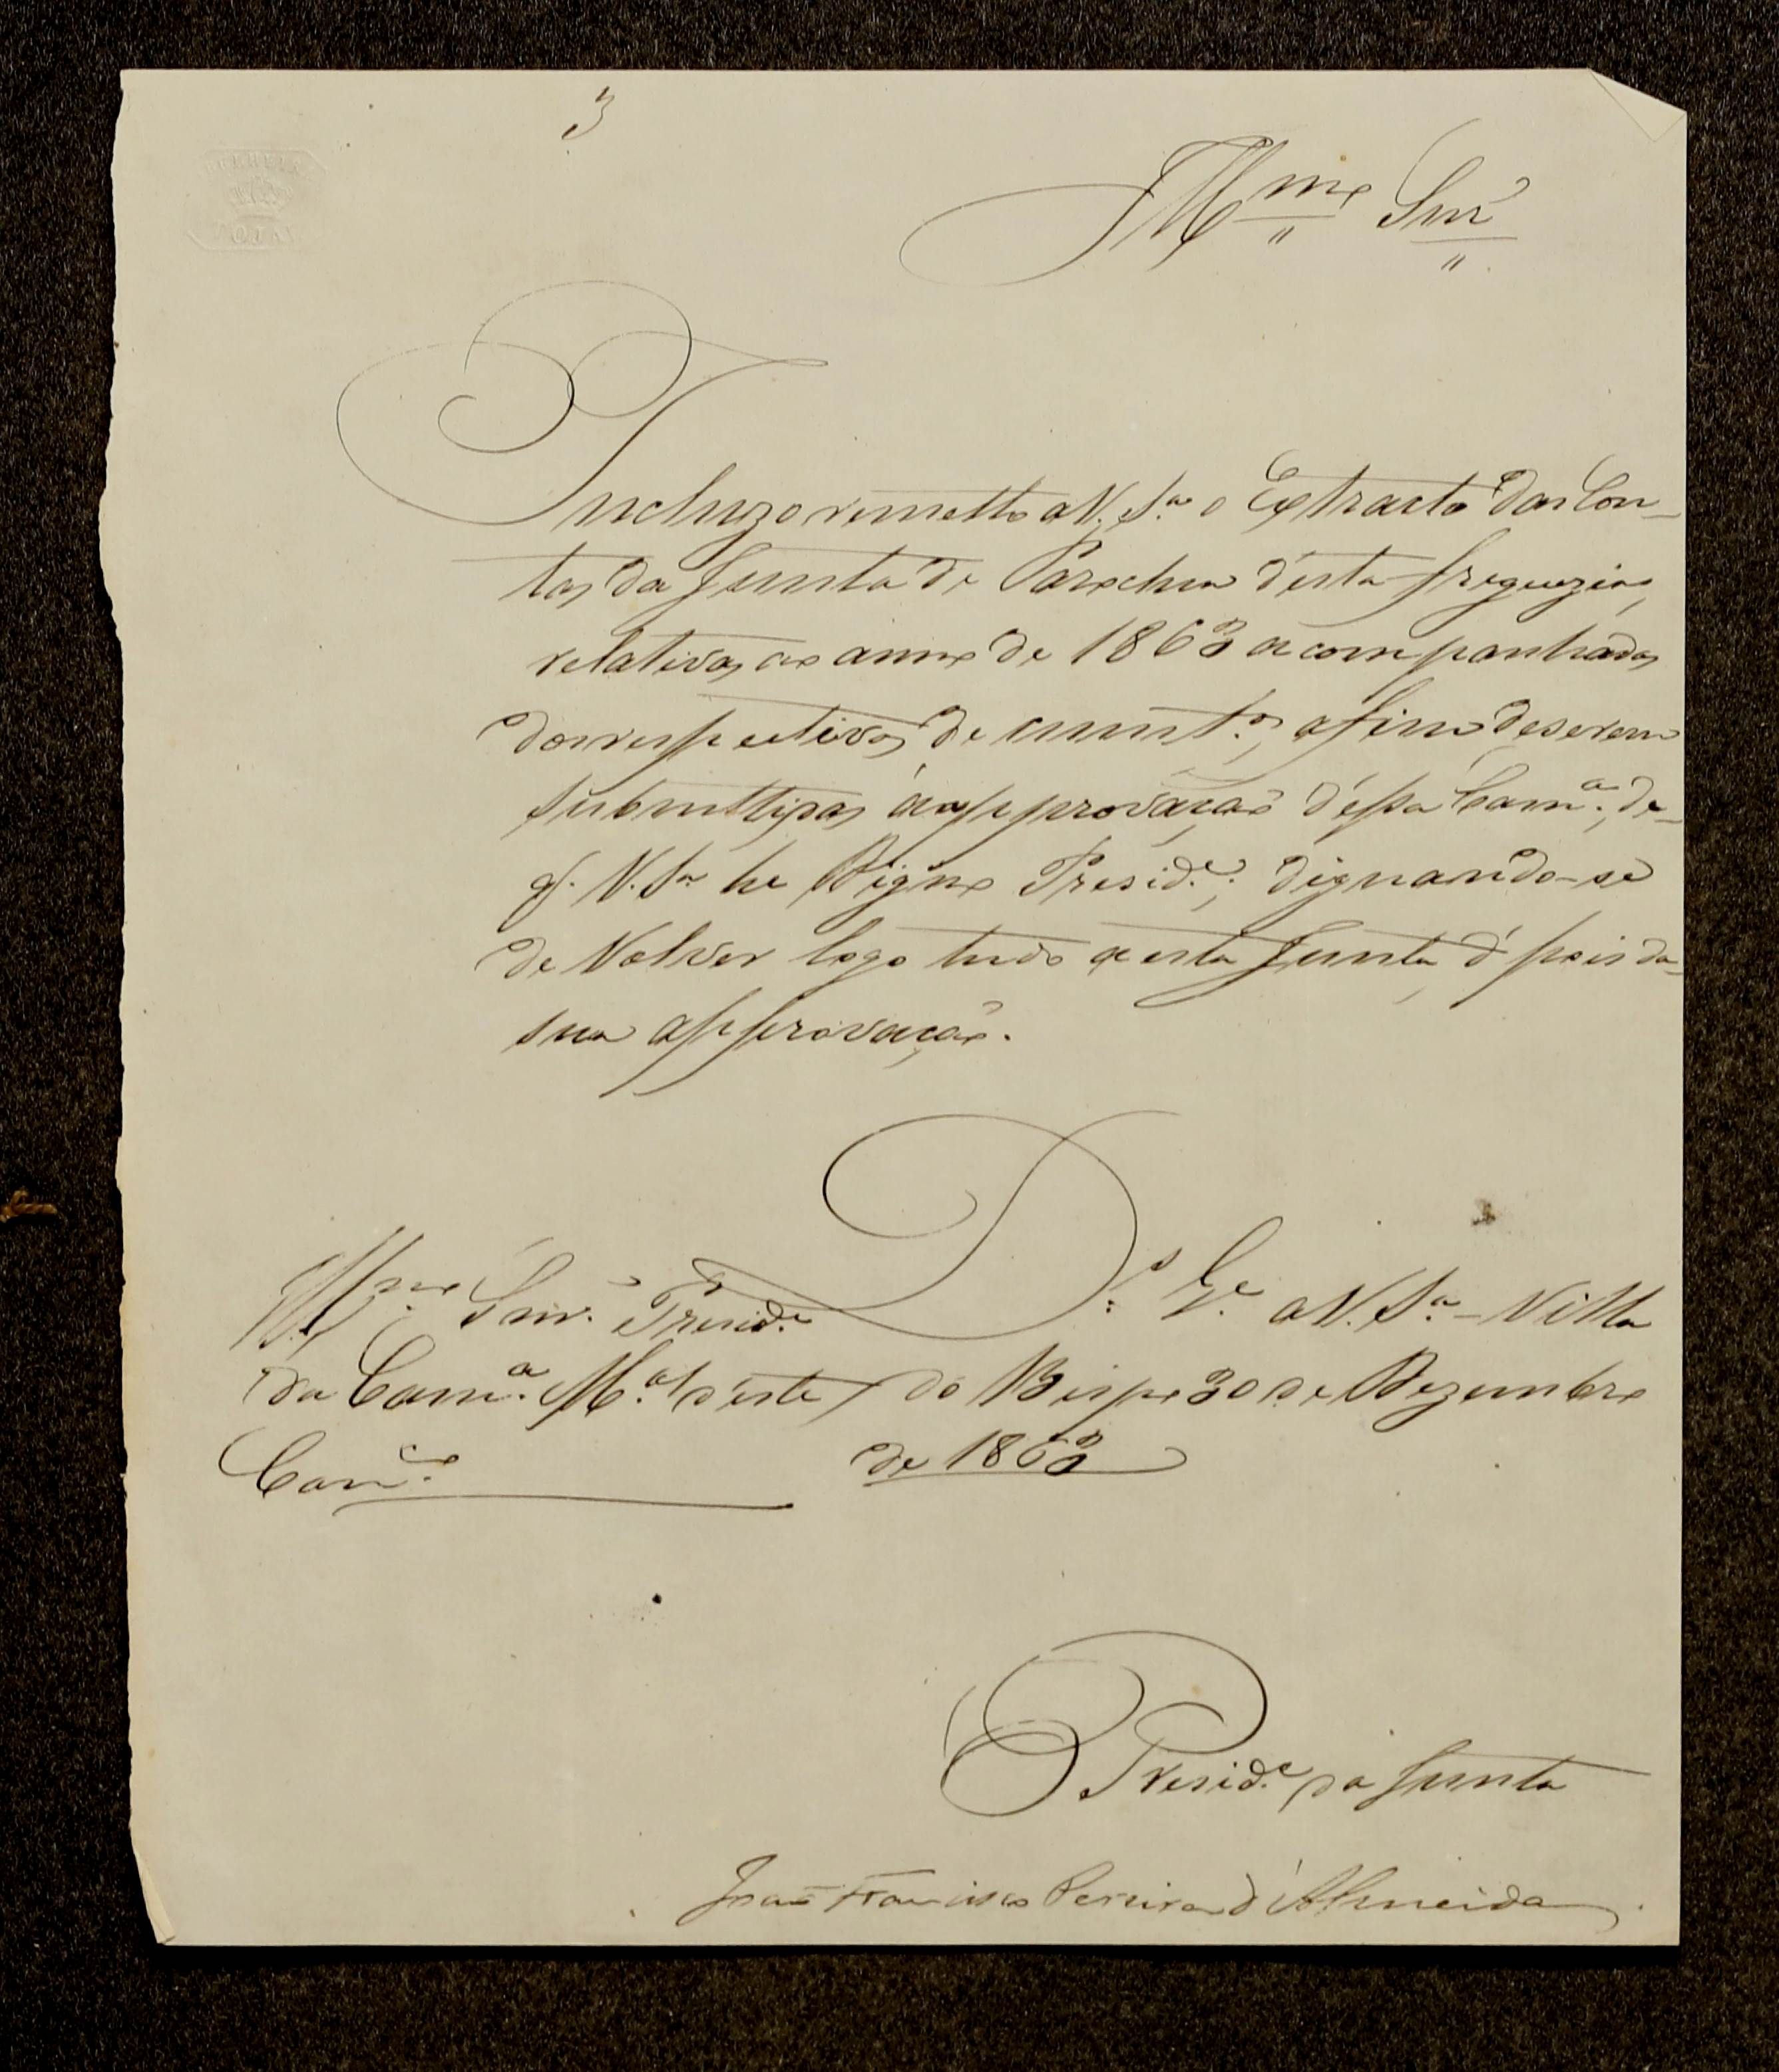 3
Illmo Snr
Incluzo remetto a V. Sa. o Extracto das Con-
tas da Junta de Parochia d'esta freguezia,
relativas ao anno de 1863 acompanhadas
dos respectivos documtos, afim de serem
submettidas á approvação d'essa Cama., de
q. V. Sa he Digno Preside.; dignando-se
de Volver logo tudo a esta Junta, d'pois da
sua approvação.
Ds. Ge. a V. Sa. - Villa
do Bispo 30 de Dezembro
de 1863
Illmo. Snr. Preside.
da Cama. Mal. d'este
Conco.
O Preside. da Junta
João Francisco Pereira d'Almeida